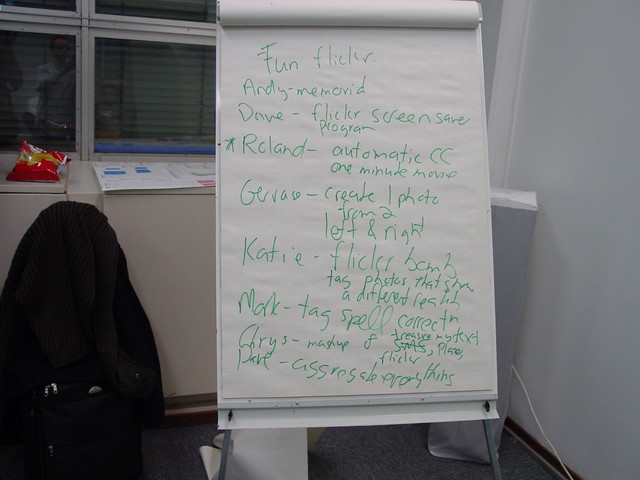 Fun flickr.
Andy-memorid
Dave - flickr screensaver
program
* Roland - automatic CC
one minute movie
Gervase - create 1 photo
from 2
left & right
Katie - flickr bomb
tag photos that show
a different reality
Mark - tag spell correctn
Chrys - mashup of treasuremytext
SMS, Plazes,
flickr
Dave - aggregate everything